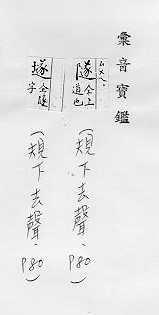 彙音寶鑑
ㄙㄨㄟˋ
隧 仝上 道也
(規下去聲, P80)
㒸 仝隧 字
(規下去聲, P80)